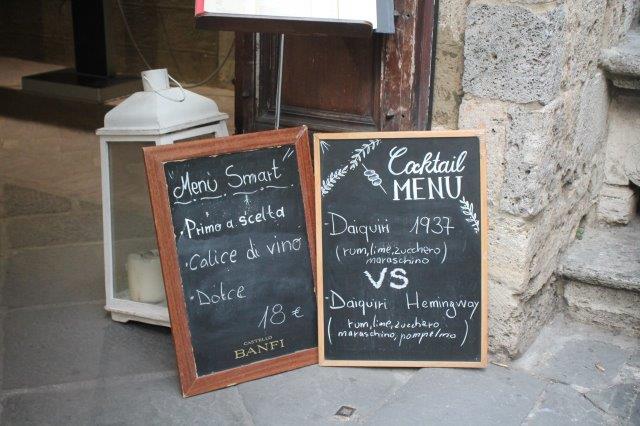 "Menù Smart"
• Primo a scelta
• Calice di vino
• Dolce
18 €
CASTELLO
BANFI
Cocktail
MENU
- Daiquiri 1937
(rum, lime, zucchero
maraschino)
VS
- Daiquiri Hemingway
(rum, lime, zucchero
maraschino, pompelmo)